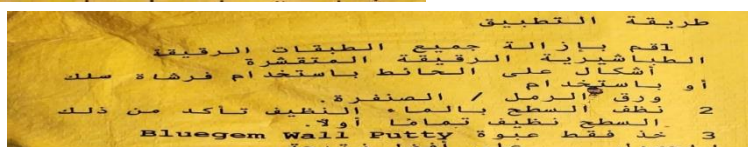 طريقة التطبيق
1قم بإزالة جميع الطبقات الرقيقة
الطباشيرية الرقيقة المتقشرة
أشكال على الحائط باستخدام فرشاة سلك
أو باستخدام
ورق الرمل / الصنفرة.
2 نظف السطح بالماء النظيف تأكد من ذلك
السطح نظيف تمامًا أولاً.
3 خذ فقط عبوة Bluegem Wall Putty